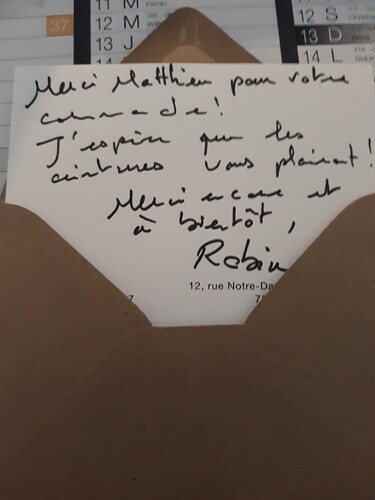 11 M Firmin
12 M
13 J
37
12 S
13 D
14 L
Merci Matthieu pour votre
commande!
J'espère que les
ceintures vous plairont!
Merci encore et
à bientôt,
Robin
12, rue Notre-Da
7